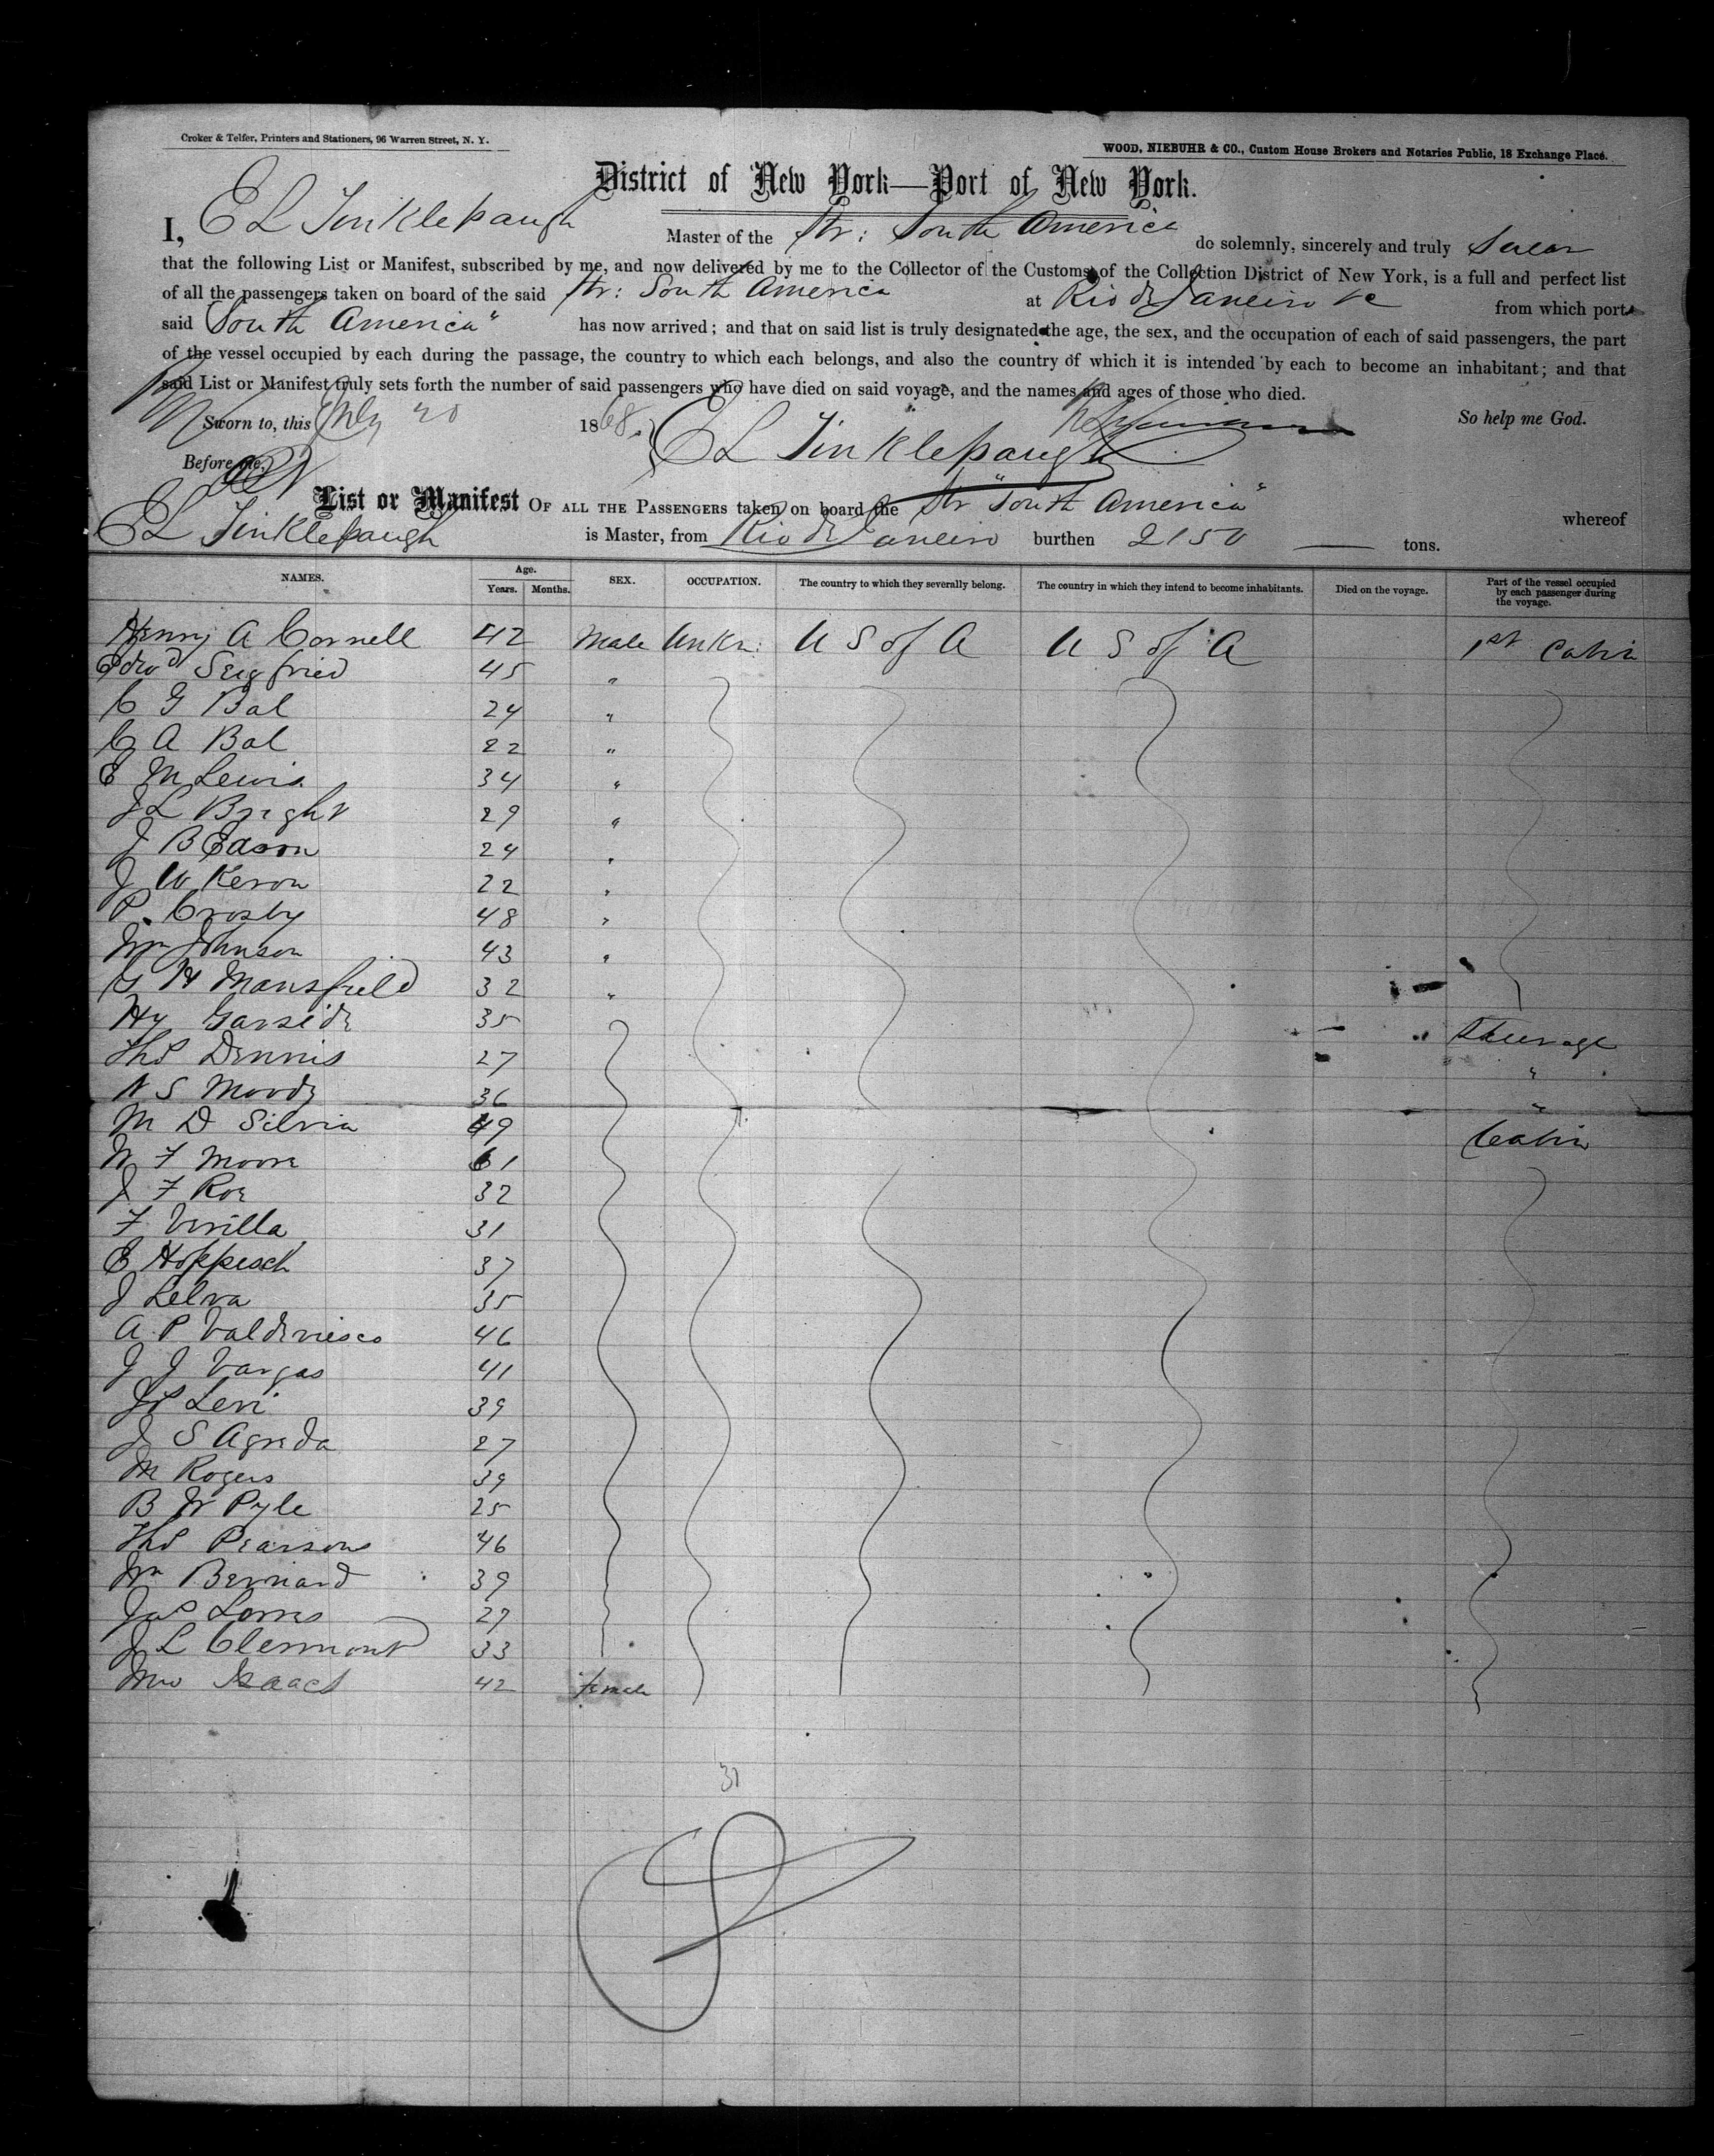 Croker & Telfer, Printers and Stationers, 96 Warren Street, N. Y.
WOOD, NIEBUHR & CO., Custom House Brokers and Notaries Public, 18 Exchange Place.
District of New York—Port of New York.
I, E L Tinklepaugh Master of the Str: South America do solemnly, sincerely and truly Swear
that the following List or Manifest, subscribed by me, and now delivered by me to the Collector of the Customs of the Collection District of New York, is a full and perfect list
of all the passengers taken on board of the said Str: South America at Rio de Janeiro &c from which port
said "South America" has now arrived; and that on said list is truly designated the age, the sex, and the occupation of each of said passengers, the part
of the vessel occupied by each during the passage, the country to which each belongs, and also the country of which it is intended by each to become an inhabitant; and that
said List or Manifest truly sets forth the number of said passengers who have died on said voyage, and the names and ages of those who died.
Sworn to, this July 20 1868. So help me God.
E L Tinklepaugh
Before me,
List or Manifest OF ALL THE PASSENGERS taken on board the Str "South America" whereof
E L Tinklepaugh is Master, from Rio de Janeiro burthen 2150 tons.
NAMES. Age. Years. Months. SEX. OCCUPATION. The country to which they severally belong. The country in which they intend to become inhabitants. Died on the voyage. Part of the vessel occupied by each passenger during the voyage.
Henry A Cornell 42 Male Unkn: U S of A U S of A 1st Cabin
Edwd Seigfried 45 "
C G Bal 24 "
C A Bal 22 "
E M Lewis 34 "
J L Bright 29 "
J B Eason 24 "
J W Keron 22 "
P. Crosby 48 "
Wm Johnson 43 "
G H Mansfield 32 "
Hy Garside 35 Steerage
Thos Dennis 27 "
N S Moody 36 "
M D Silvia 49 Cabin
W F Moore 61
J F Roe 32
F Verilla 31
E Hoppesch 37
J Lelva 35
A P Valdivieso 46
J J Vargas 41
Js Levi 39
J S Agreda 27
M Rogers 39
B W Pyle 25
Thos Pearsons 46
Wm Bernard 39
Jas Lorres 27
J L Clermont 33
Mrs Isaacs 42 female
31